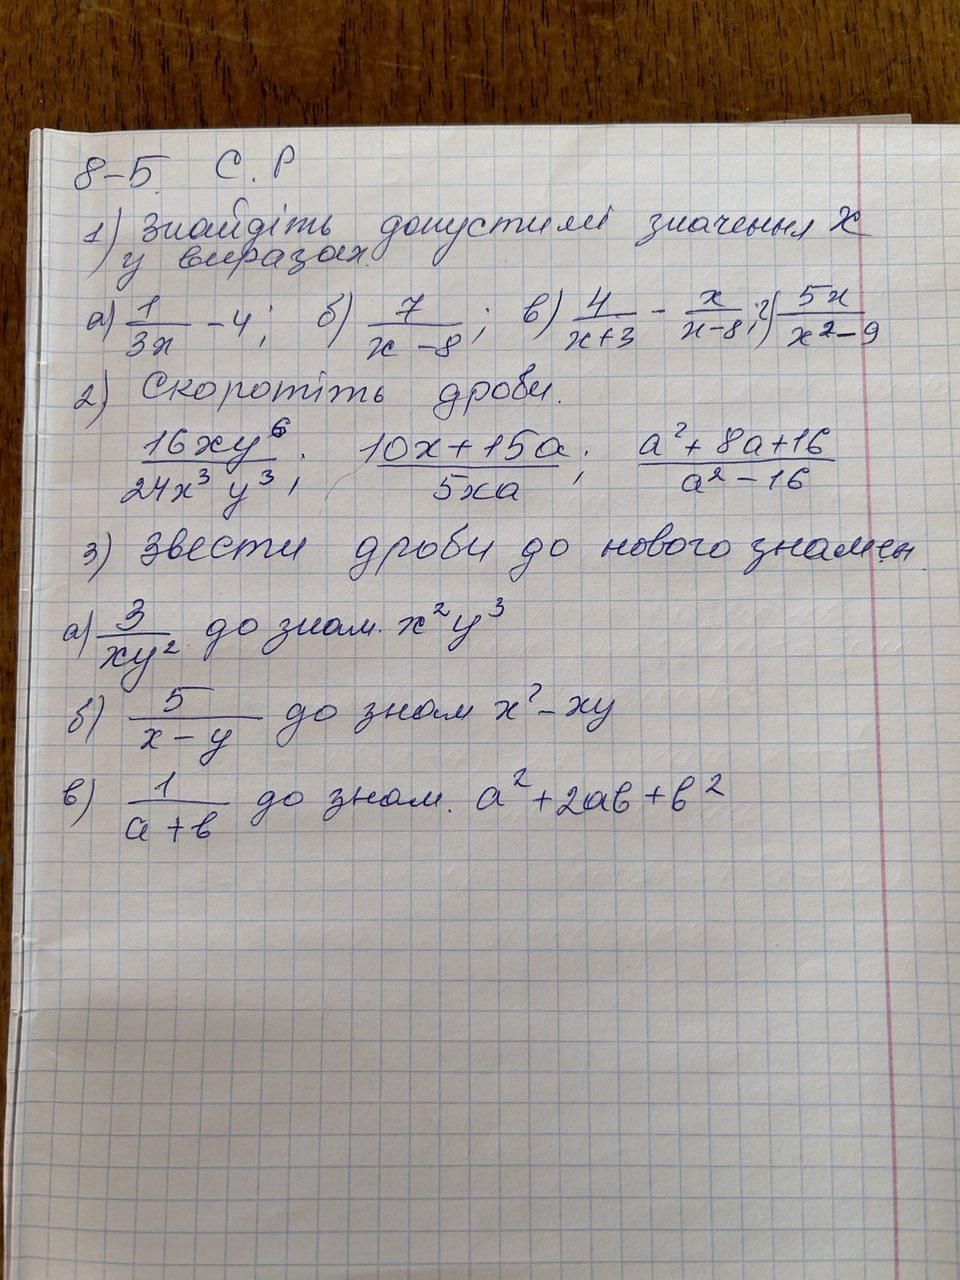 8-Б. С.Р
1) Знайдіть допустимі значення x
у виразах.
а) 1/3x - 4; б) 7/(x-8); в) 4/(x+3) - x/(x-8); г) 5x/(x²-9)
2) Скоротіть дроби.
16xy⁶/24x³y³; (10x+15a)/5xa; (a²+8a+16)/(a²-16)
3) Звести дроби до нового знамен.
а) 3/xy² до знам. x²y³
б) 5/(x-y) до знам x²-xy
в) 1/(a+b) до знам. a²+2ab+b²